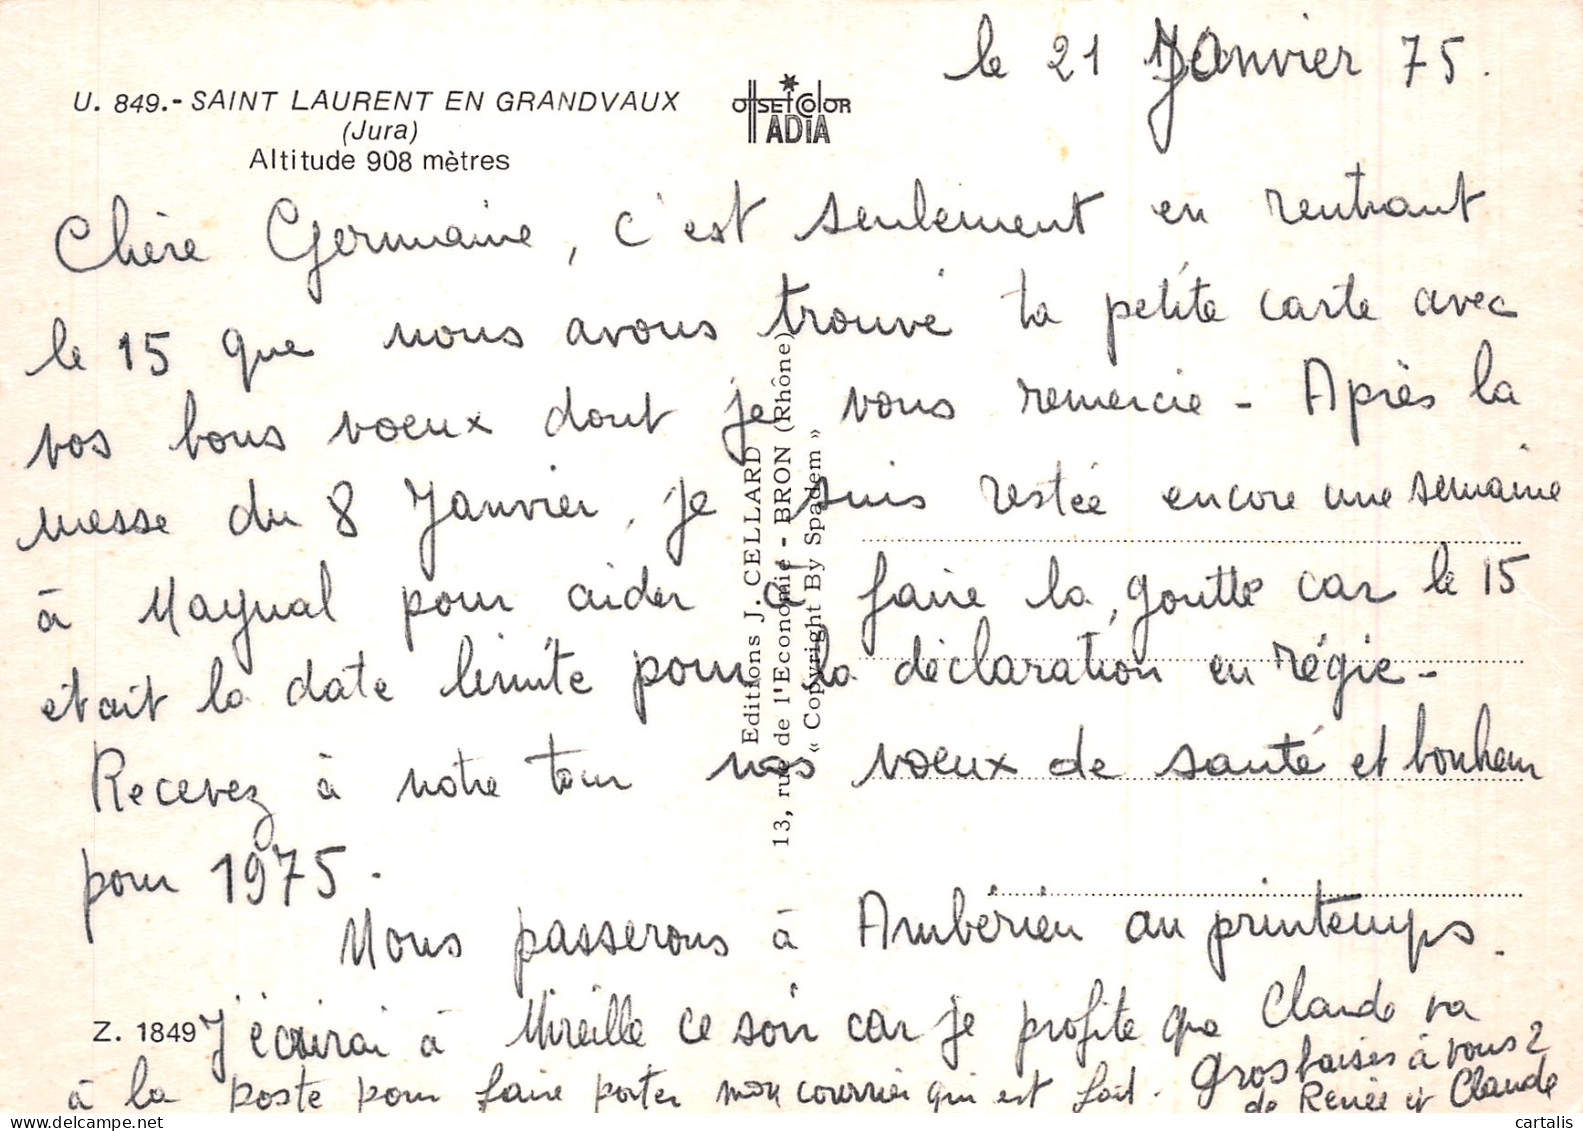 le 21 Janvier 75.
U. 849.- SAINT LAURENT EN GRANDVAUX
(Jura)
Altitude 908 mètres
OffSET COlOR
ADIA
Chère Germaine, c'est seulement en rentrant
le 15 que nous avons trouvé ta petite carte avec
vos bons voeux dont je vous remercie - Après la
messe du 8 Janvier, je suis restée encore une semaine
à Maynal pour aider à faire la goutte car le 15
était la date limite pour la déclaration en régie -
Recevez à notre tour nos voeux de santé et bonheur
pour 1975.
Nous passerons à Ambérieu au printemps.
J'écrirai à Mireille ce soir car je profite que Claude va
à la poste pour faire porter mon courrier qui est fait.
Gros baisers à vous 2
de Renée et Claude
Z. 1849
Editions J. CELLARD
13, rue de l'Economie - BRON (Rhône)
« Copyright By Spadem »
cartalis